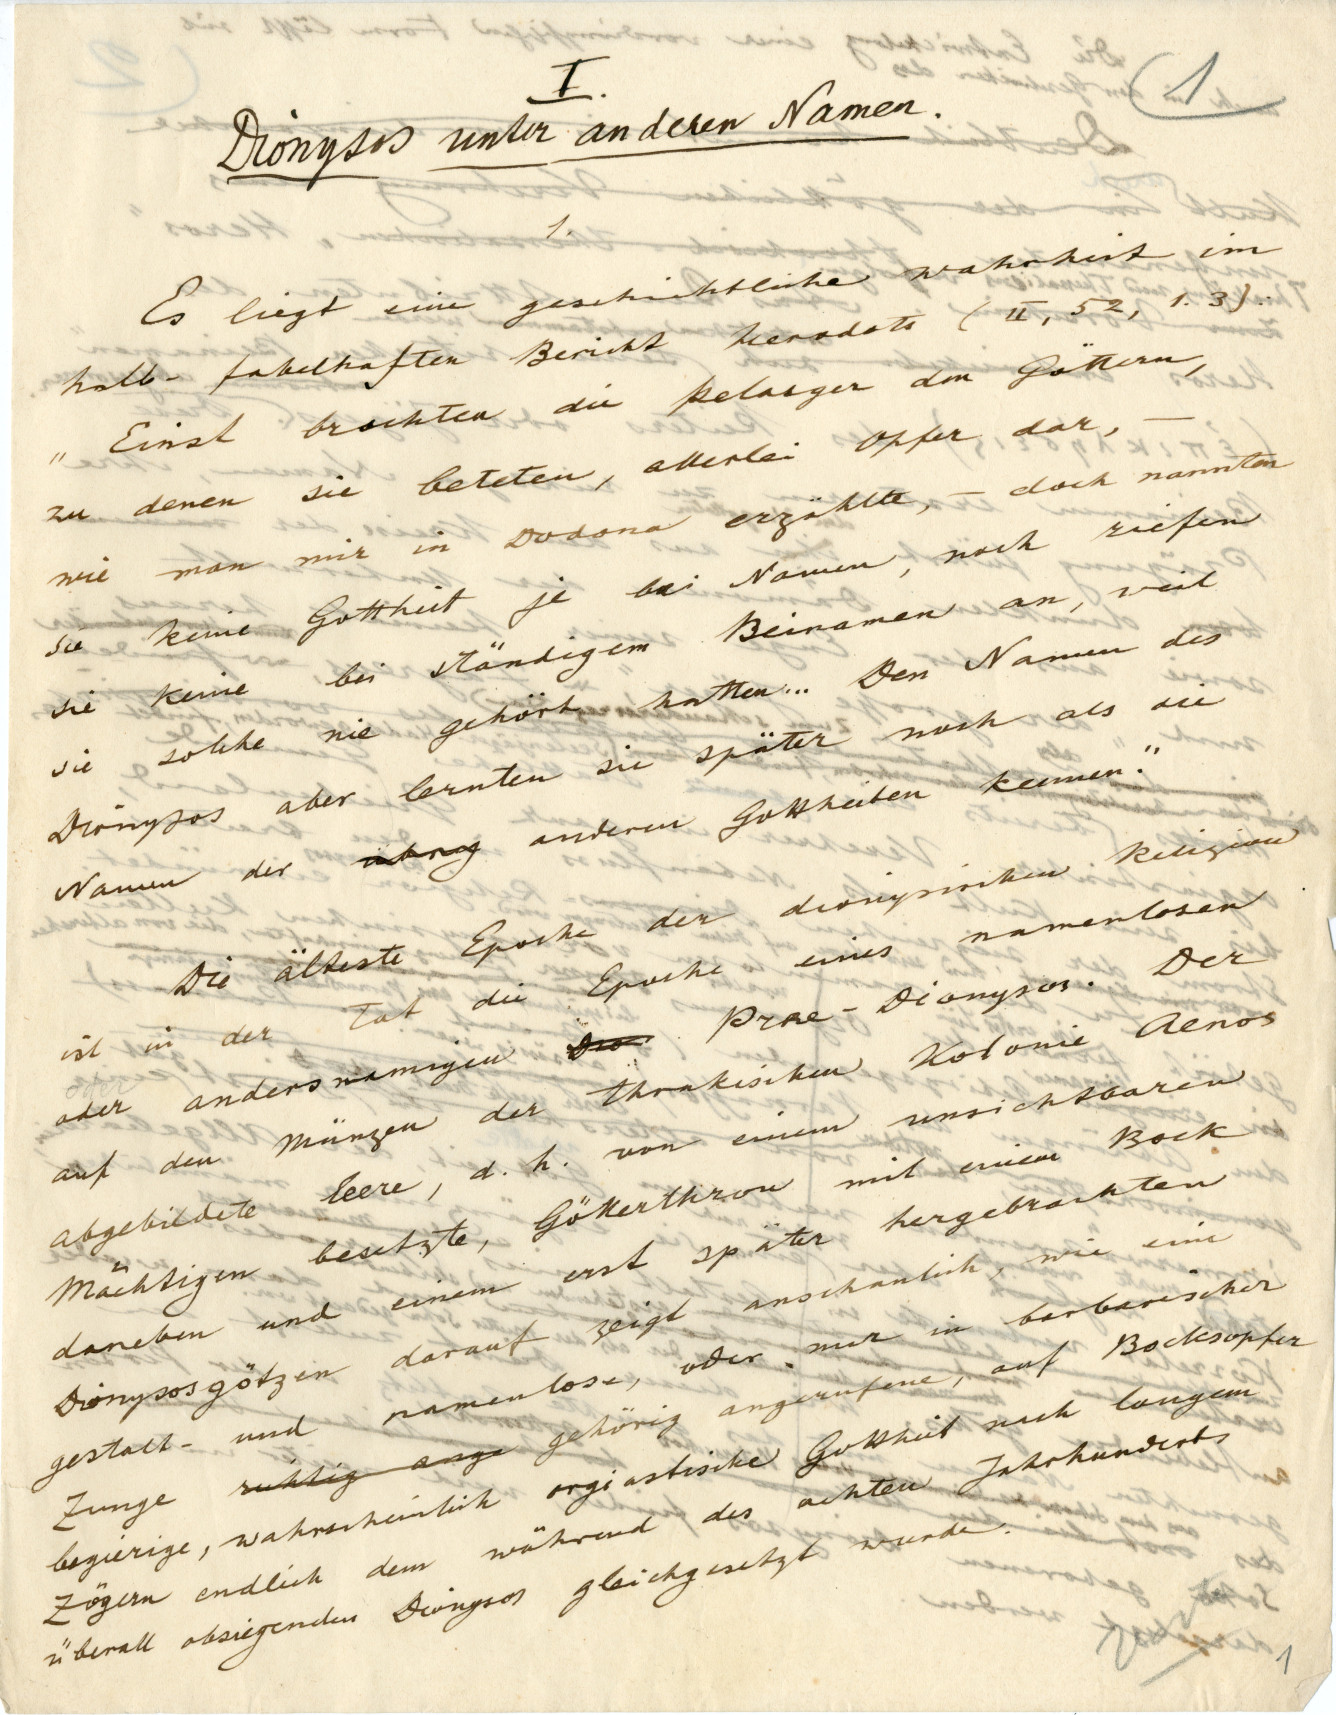 (1
I.
Dionysos unter anderen Namen.
1.
Es liegt eine geschichtliche wahrheit im
halb-fabelhaften Bericht Herodots (II, 52, 1.3):
"Einst brachten die Pelasger den Göttern,
zu denen sie beteten, allerlei Opfer dar, —
wie man mir in Dodona erzählte, — doch nannten
sie keine Gottheit je bei Namen, noch riefen
sie keine bei ständigem Beinamen an, weil
sie solche nie gehört hatten... Den Namen des
Dionysos aber lernten sie später noch als die
Namen der übrig anderen Gottheiten kennen."
Die älteste Epoche der dionysischen Religion
ist in der Tat die Epoche eines namenlosen
oder
oder andersnamigen Dio Prae-Dionysos. Der
auf den Münzen der thrakischen Kolonie Aenos
abgebildete leere, d. h. von einem unsichtbaren
Mächtigen besetzte, Götterthron mit einem Bock
daneben und einem erst später hergebrachten
Dionysosgötzen darauf zeigt anschaulich, wie eine
gestalt- und namenlose, oder nur in barbarischer
Zunge richtig ange gehörig angerufene, auf Bocksopfer
begierige, wahrscheinlich orgiastische Gottheit nach langem
Zögern endlich dem während des achten Jahrhunderts
überall obsiegenden Dionysos gleichgesetzt wurde.
1